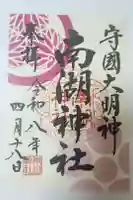 守國大明神
南湖神社
奉拝
令和八年
四月十八日